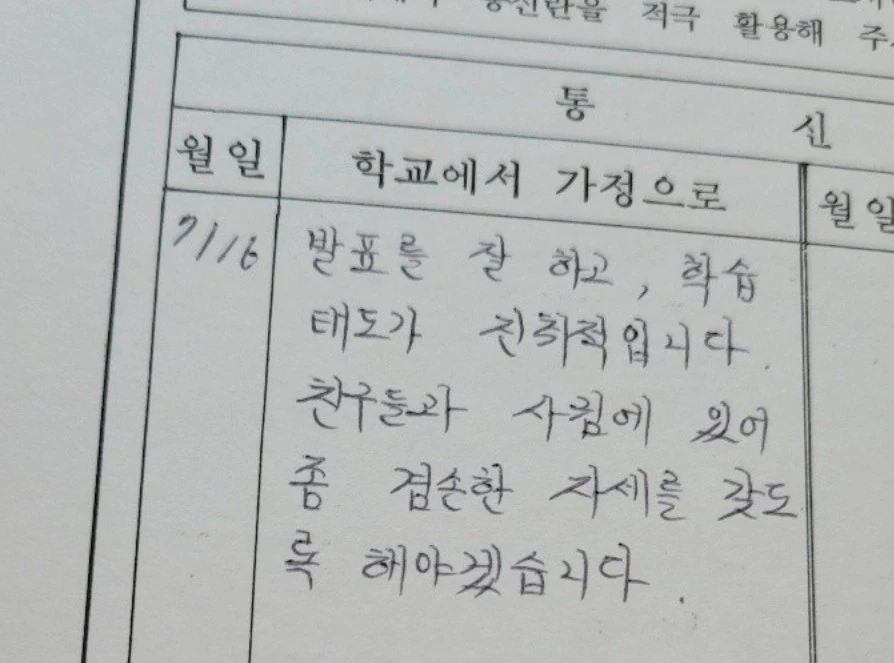 통신란을 적극 활용해 주
통 신
월 일 학교에서 가정으로 월 일
7/16 발표를 잘 하고, 학습
태도가 진취적입니다.
친구들과 사귐에 있어
좀 겸손한 자세를 갖도
록 해야겠습니다.